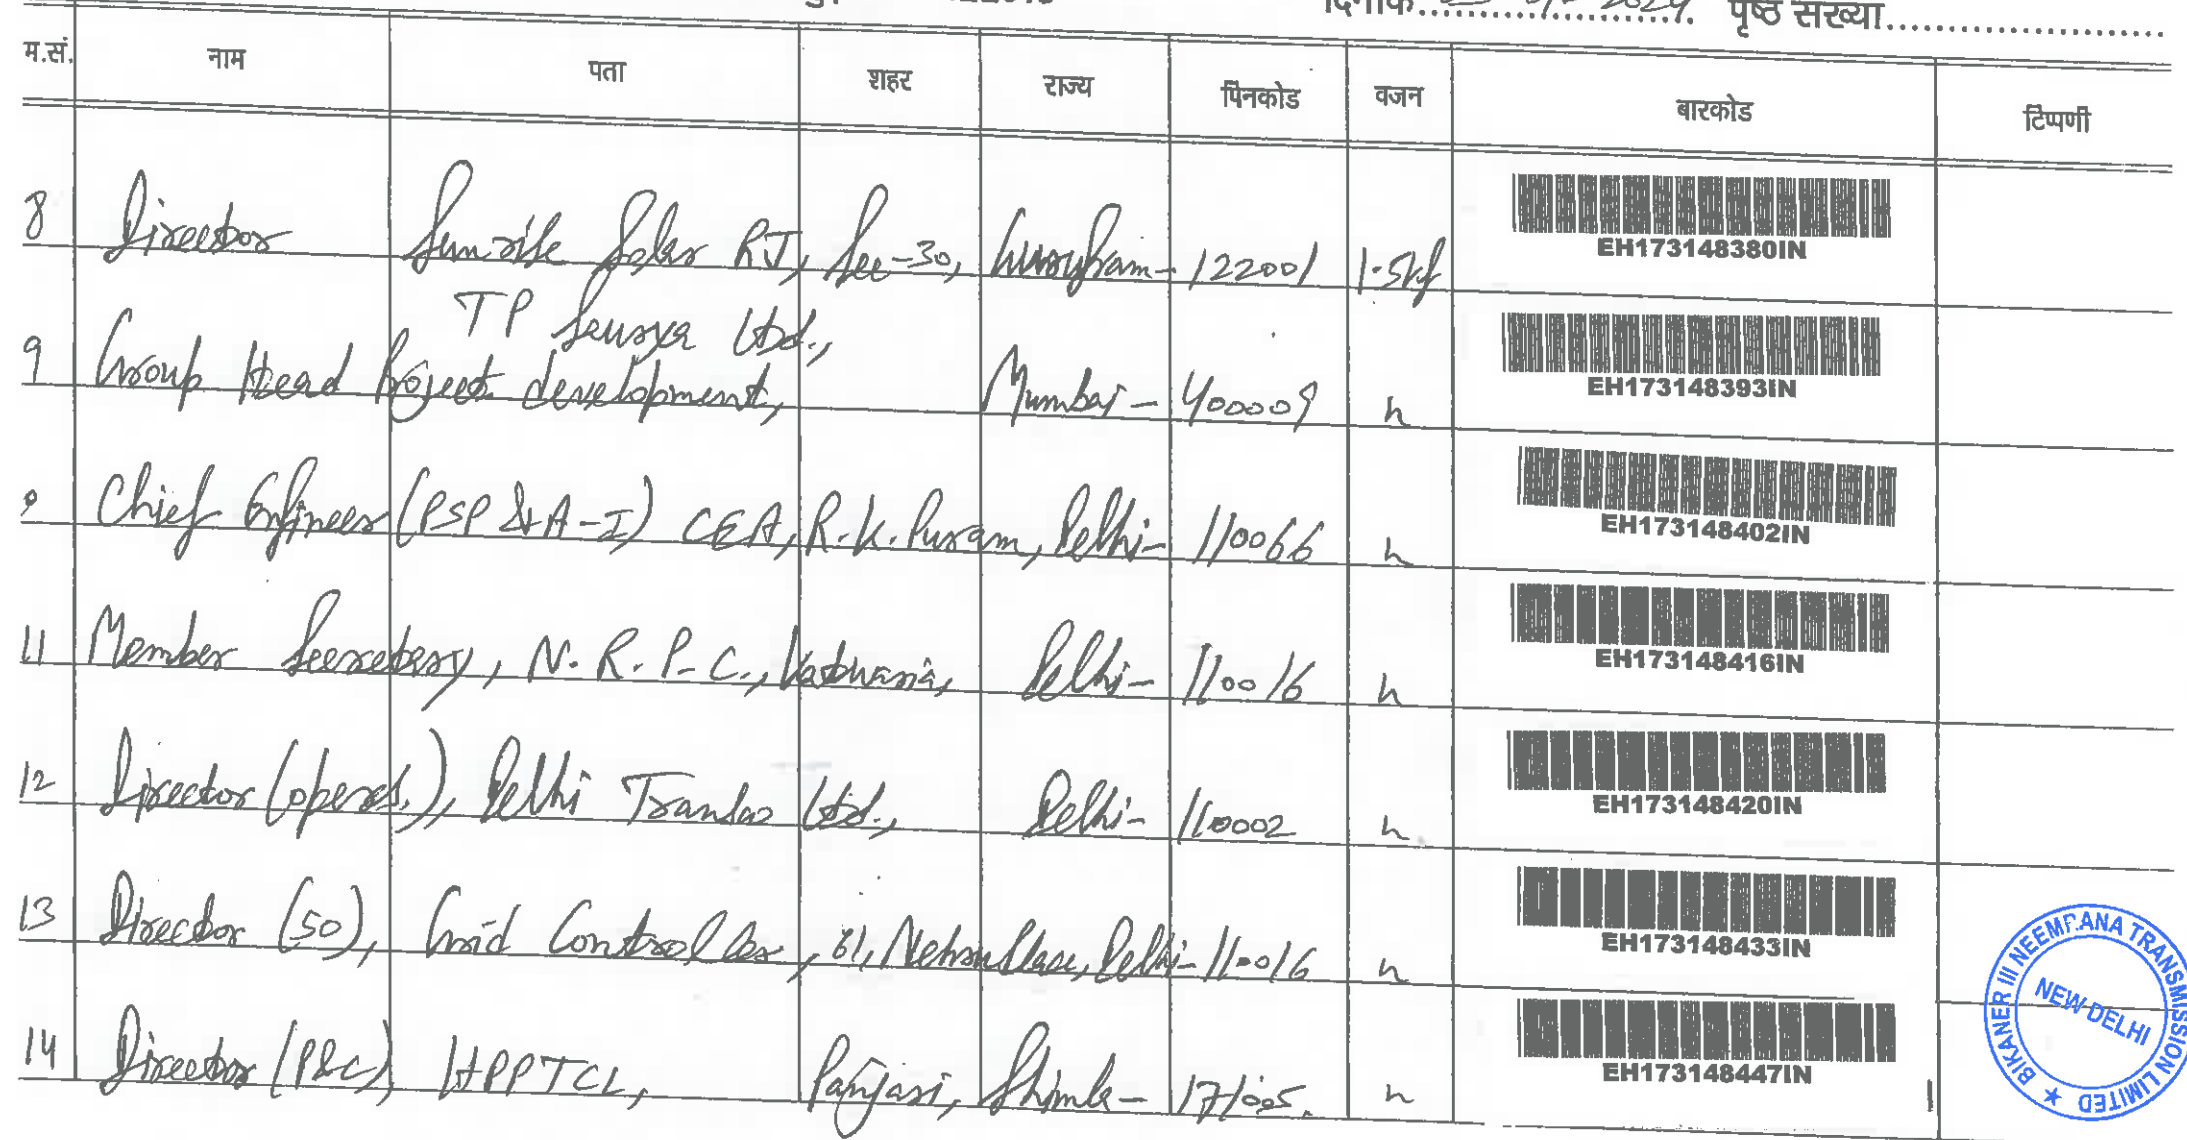 दिनांक.... 2024. पृष्ठ संख्या....
म.सं. नाम पता शहर राज्य पिनकोड वजन बारकोड टिप्पणी
8 Director Sunrise Solar RJ, Sec-30, Gurugram- 122001 1.5kg EH173148380IN
TP Saurya Ltd.,
9 Group Head Project development, Mumbai- 400009 " EH173148393IN
Chief Engineer (PSP &A-I) CEA, R.K. Puram, Delhi- 110066 " EH173148402IN
11 Member Secretary, N.R.P.C., Katwaria, Delhi- 110016 " EH173148416IN
12 Director (operat.), Delhi Transco Ltd., Delhi- 110002 " EH173148420IN
13 Director (SO), Grid Controller, 61, Nehru Place, Delhi- 110016 " EH173148433IN
14 Director (P&C) HPPTCL, Panjari, Shimla- 171005. " EH173148447IN
BIKANER III NEEMRANA TRANSMISSION LIMITED ★
NEW DELHI